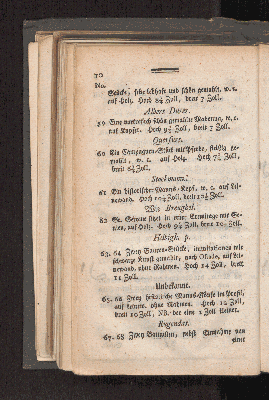 70
No.
Stücke, sehr lebhaft und schön gemahlt, w. o.
auf Holz. Hoch 8½ Zoll, breit 7 Zoll.
Albert Dürer.
59 Eine meisterlich schön gemahlte Madonna, w. o.
auf Kupfer. Hoch 9½ Zoll, breit 7 Zoll.
Querfurt.
60 Ein Campagnen-Stück mit Pferde, fleißig ge-
mahlt, w. o. auf Holz. Hoch 7½ Zoll
breit 8½ Zoll.
Stockmann.
61 Ein historischer Manns-Kopf, w. o. auf Lei-
newand. Hoch Zoll, breit Zoll.
Breughel.
62 St. sitzt in einer Ermitage mit Ge-
nien, auf Holz. Hoch 9½ Zoll, breit Zoll.
Helbigk. p.
63. 64 Zwey Bauren-Stücke, inventiones wie
schwarze Kunst gemahlt, nach Ostade, auf Lei-
newand, ohne Rahmen. Hoch 14 Zoll, breit
11 Zoll.
Unbekannt.
65. 66 Zwey Manns-Köpfe im Profil,
auf ohne Rahmen. Hoch 12 Zoll,
breit 10 Zoll, NB. der eine 1 Zoll kleiner.
Rugendas.
67. 68 Zwey Bataillen, nebst von
einer